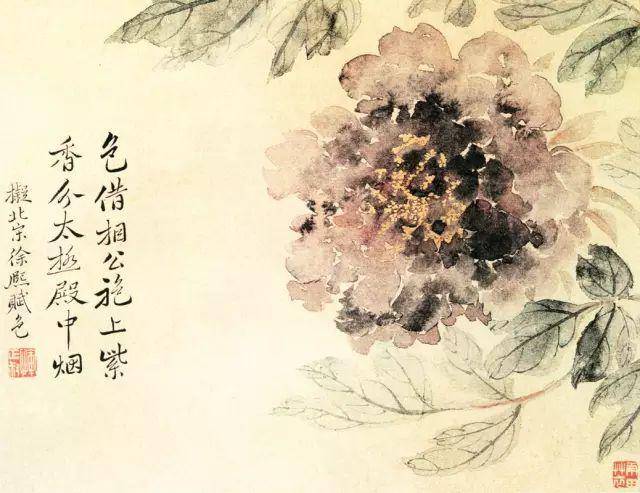 色借相公袍上紫
香分太极殿中烟
擬北宗徐熙賦色